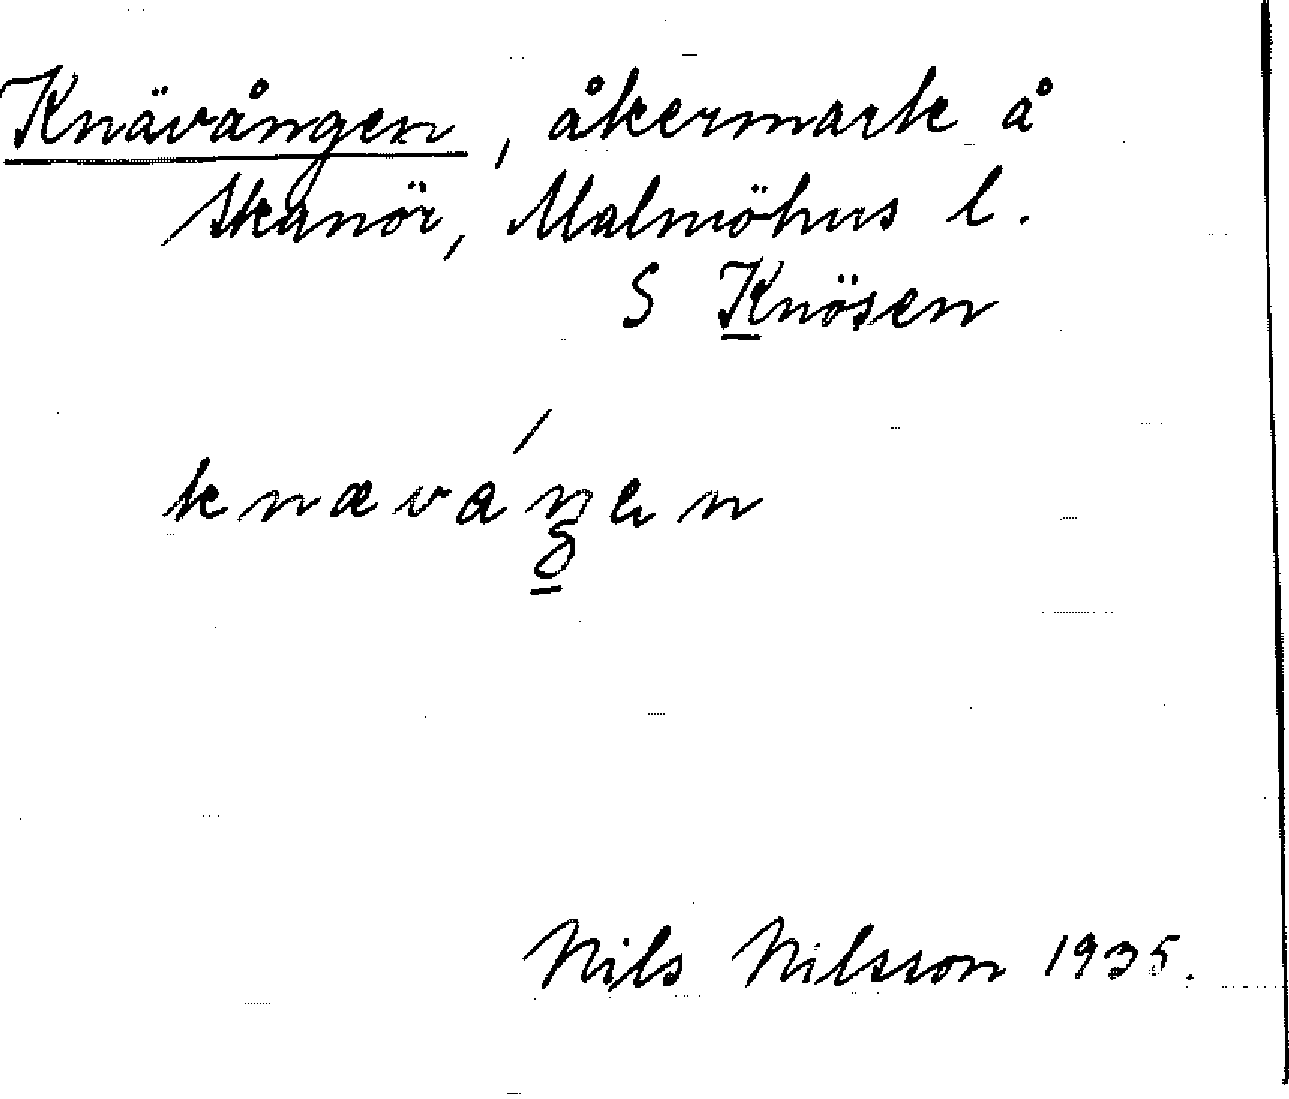 Knävången, åkermark å
Skanör, Malmöhus l.
S Knösen
knævaŋen
Nils Nilsson 1935.